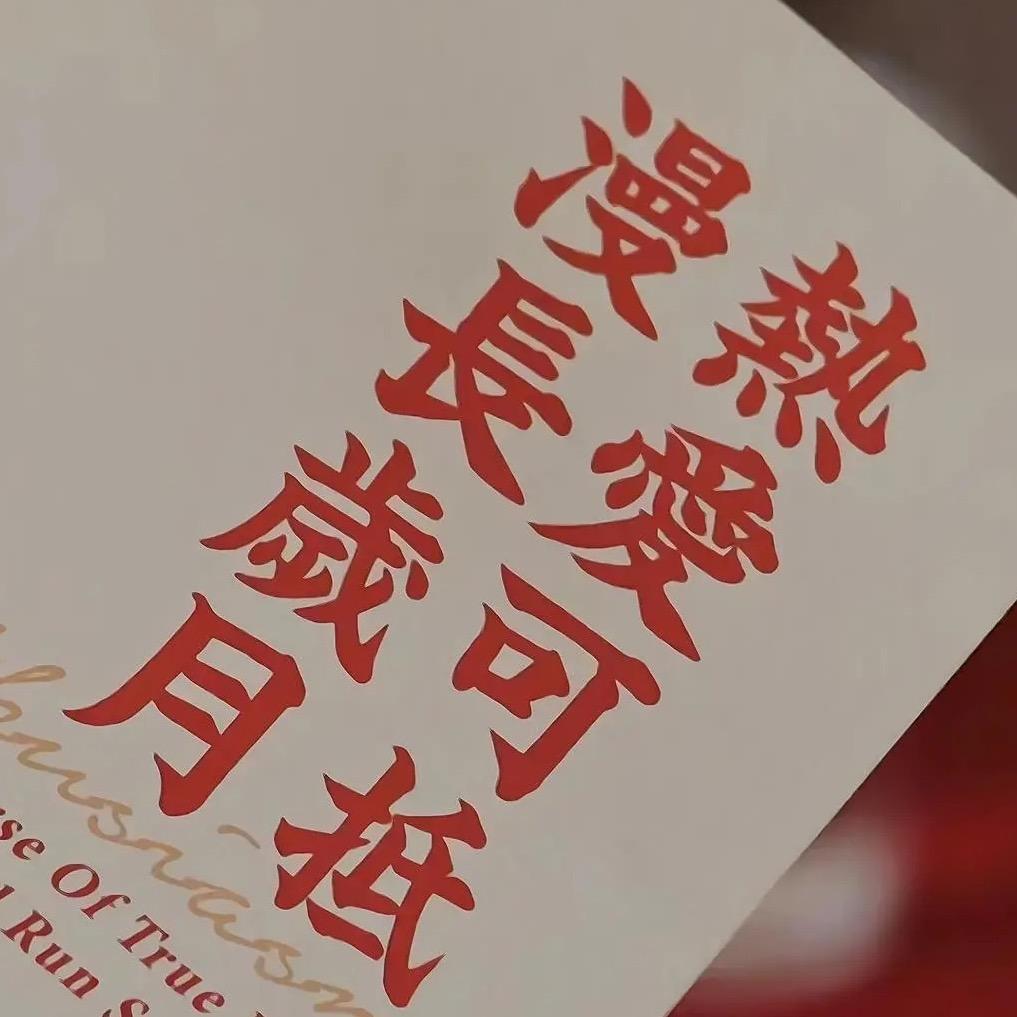 熱愛可抵
漫長歲月
Of True
Run